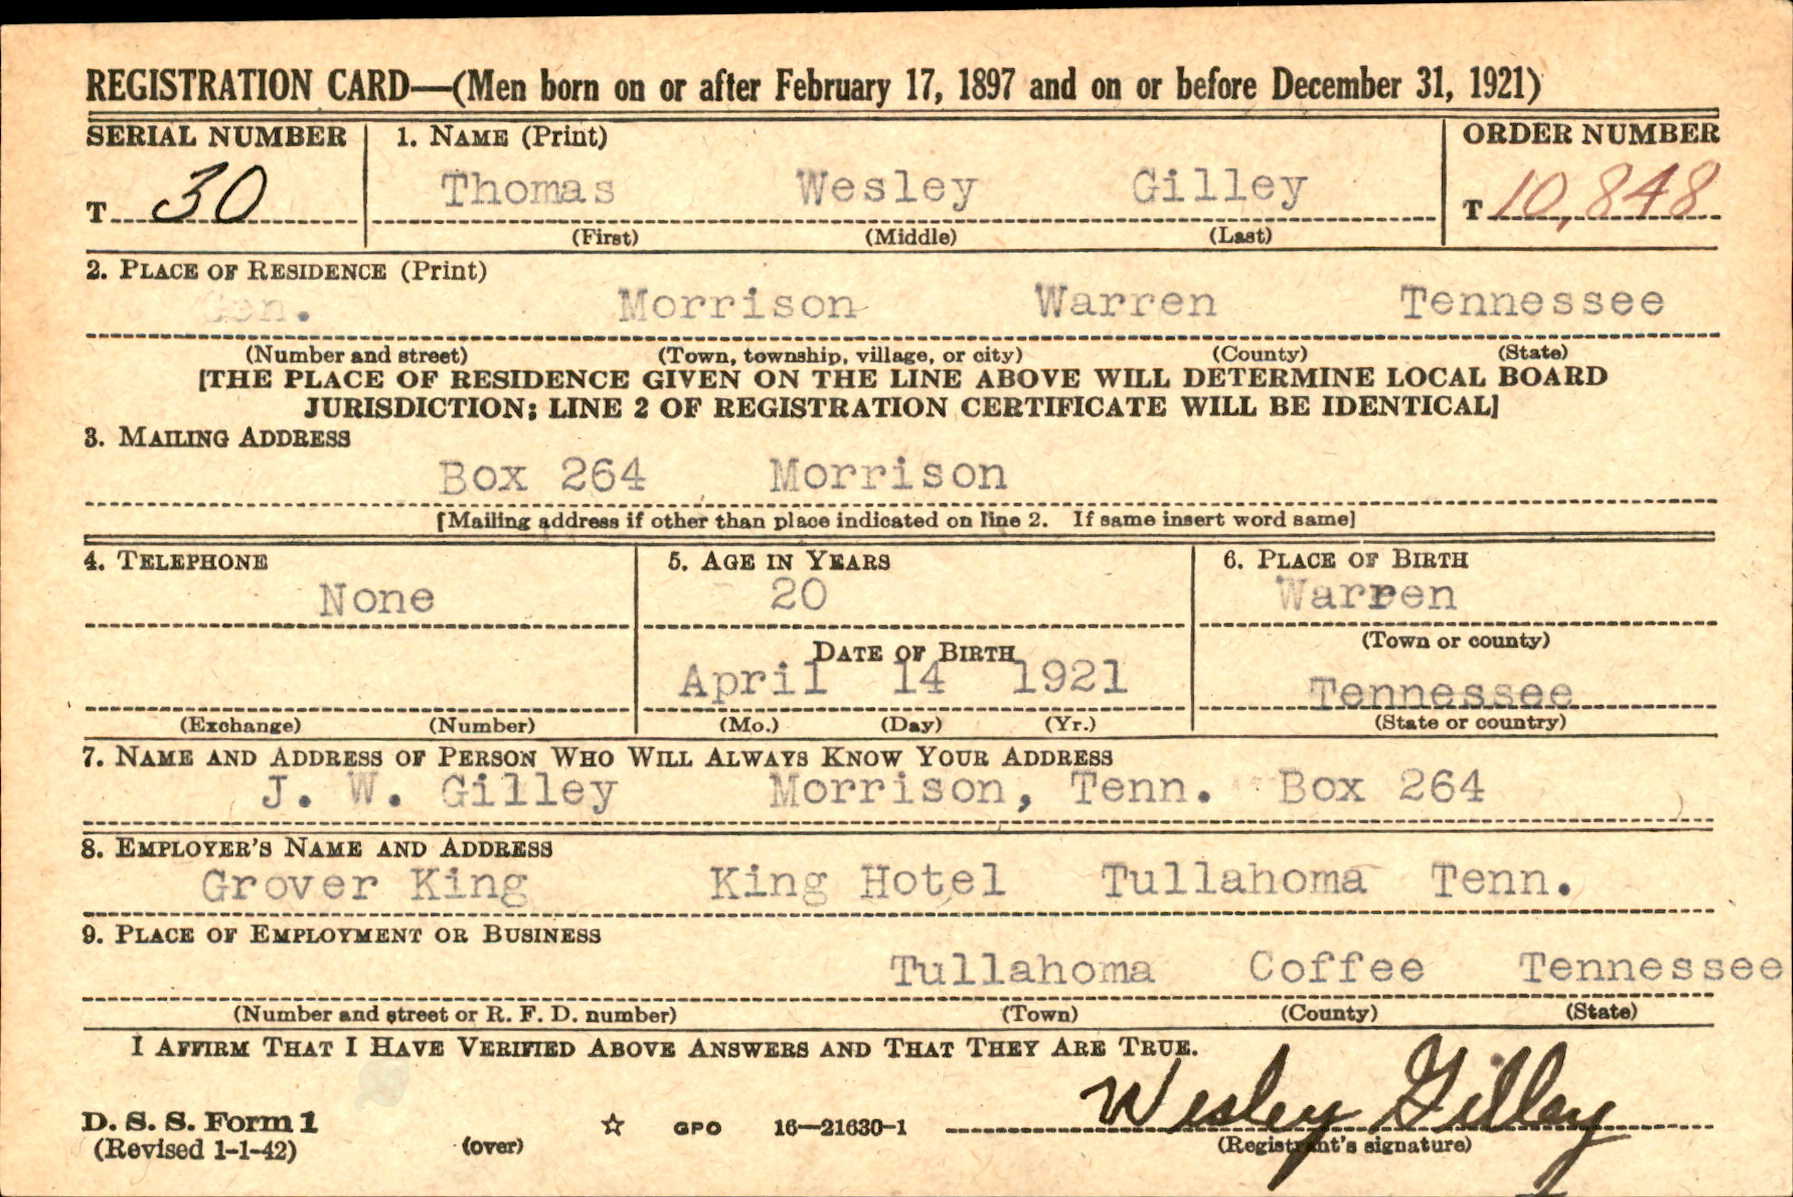 REGISTRATION CARD—(Men born on or after February 17, 1897 and on or before December 31, 1921)
SERIAL NUMBER 1. NAME (Print) ORDER NUMBER
T 30 Thomas Wesley Gilley T 10,848
(First) (Middle) (Last)
2. PLACE OF RESIDENCE (Print)
Gen. Morrison Warren Tennessee
(Number and street) (Town, township, village, or city) (County) (State)
[THE PLACE OF RESIDENCE GIVEN ON THE LINE ABOVE WILL DETERMINE LOCAL BOARD
JURISDICTION; LINE 2 OF REGISTRATION CERTIFICATE WILL BE IDENTICAL]
3. MAILING ADDRESS
Box 264 Morrison
[Mailing address if other than place indicated on line 2. If same insert word same]
4. TELEPHONE 5. AGE IN YEARS 6. PLACE OF BIRTH
None 20 Warren
DATE OF BIRTH (Town or county)
April 14 1921 Tennessee
(Exchange) (Number) (Mo.) (Day) (Yr.) (State or country)
7. NAME AND ADDRESS OF PERSON WHO WILL ALWAYS KNOW YOUR ADDRESS
J. W. Gilley Morrison, Tenn. Box 264
8. EMPLOYER'S NAME AND ADDRESS
Grover King King Hotel Tullahoma Tenn.
9. PLACE OF EMPLOYMENT OR BUSINESS
Tullahoma Coffee Tennessee
(Number and street or R. F. D. number) (Town) (County) (State)
I AFFIRM THAT I HAVE VERIFIED ABOVE ANSWERS AND THAT THEY ARE TRUE.
Wesley Gilley
D. S. S. Form 1
(Revised 1-1-42) (over) ☆ GPO 16—21630-1 (Registrant's signature)